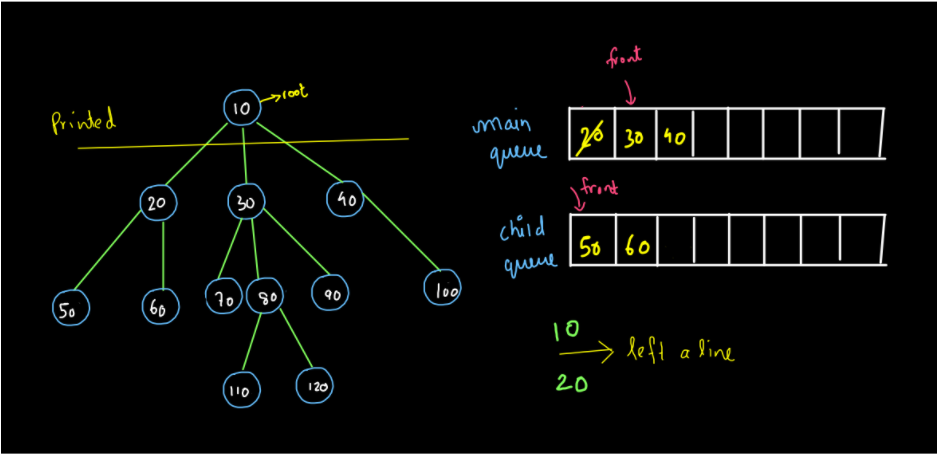 Printed
10
root
20
30
40
50
60
70
80
90
100
110
120
front
main
queue
20 30 40
front
child
queue
50 60
10
left a line
20